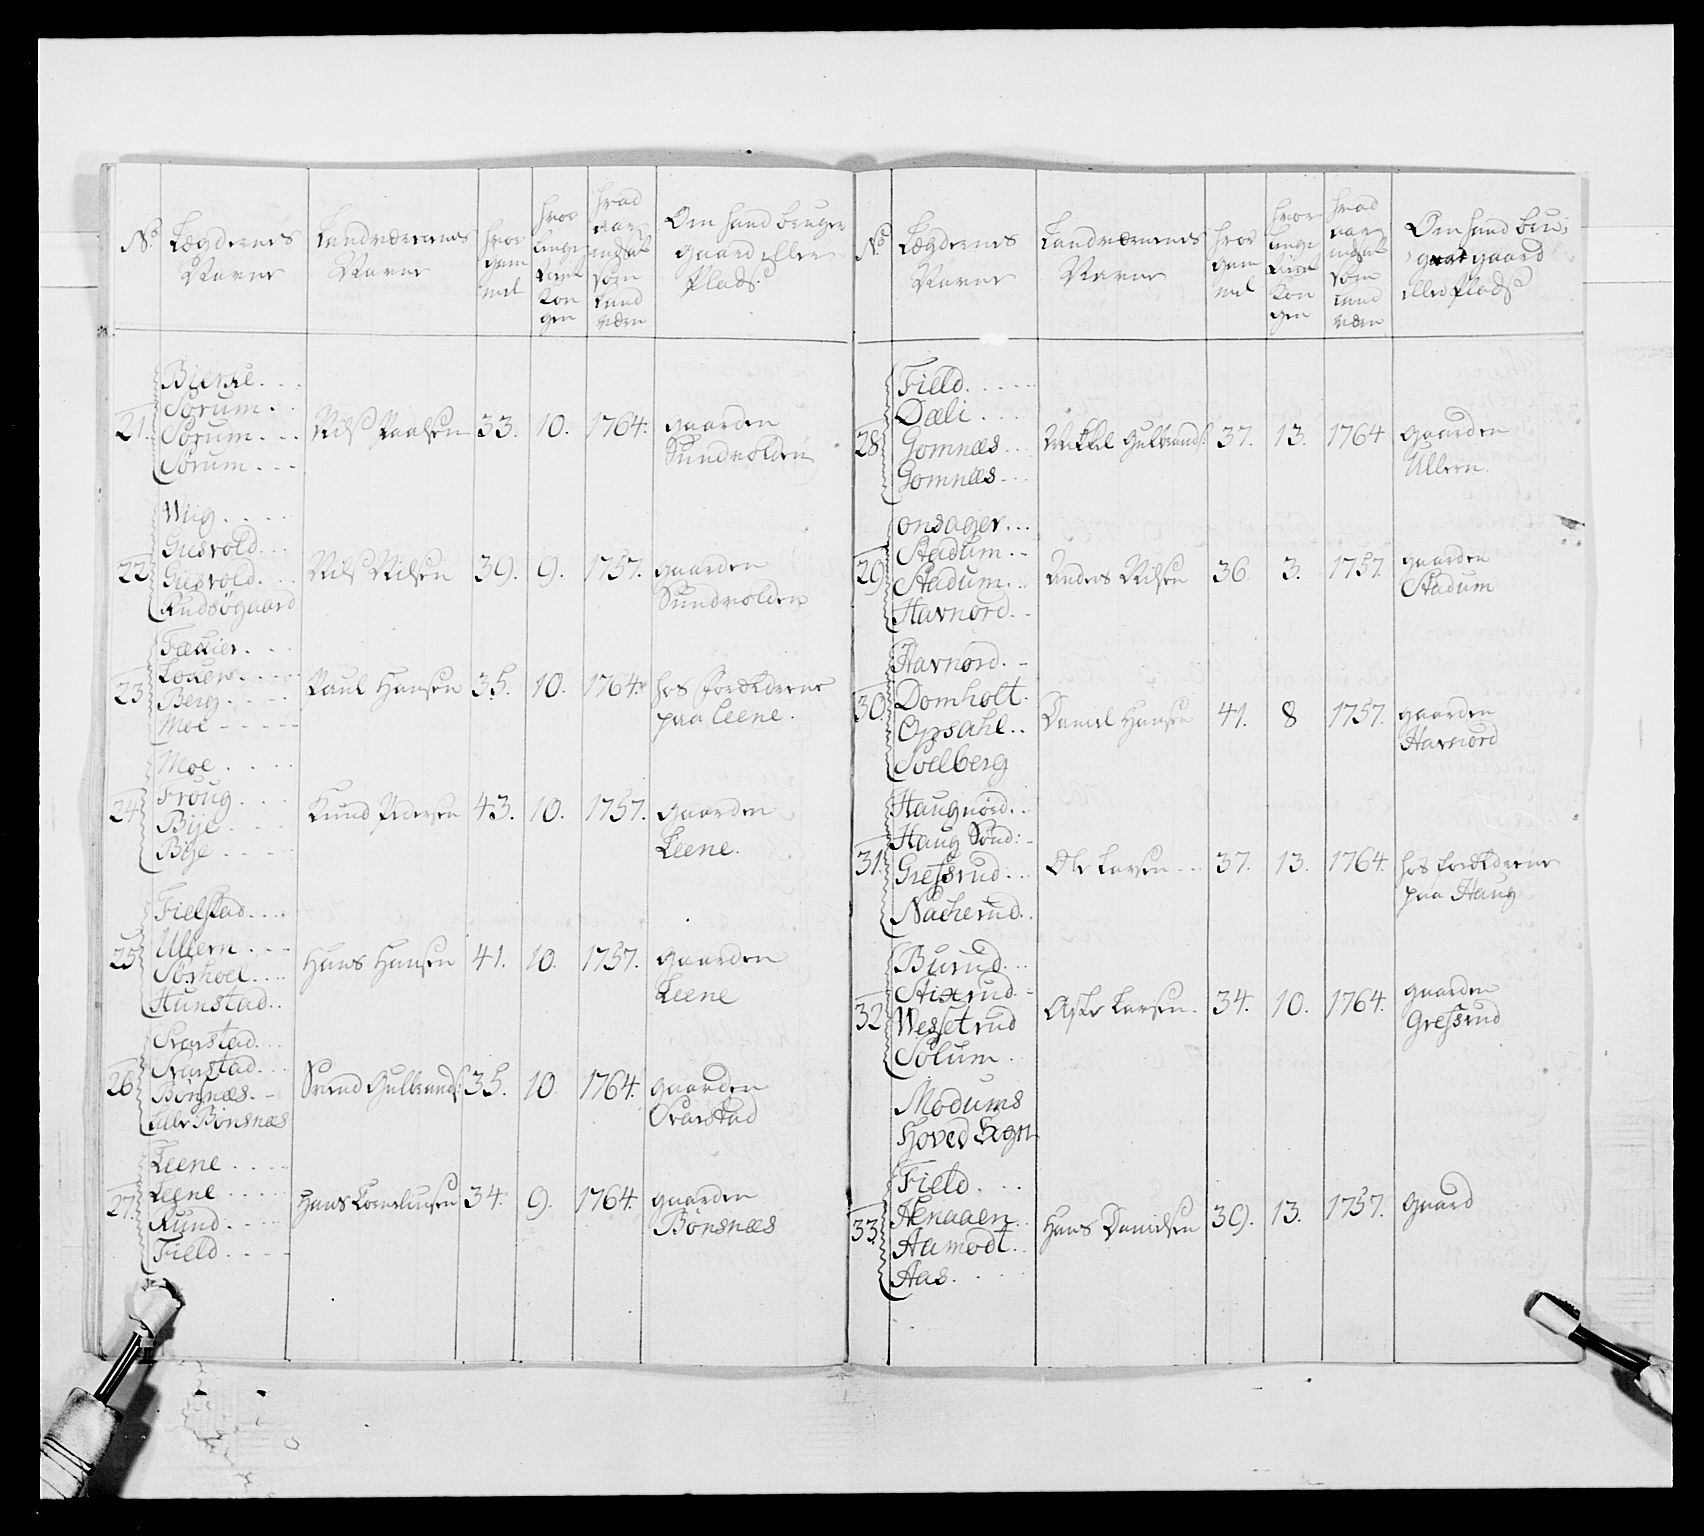 No
Lægdernes
Navne
Landværnenes
Navne
hvor
gam
mel
hvor
lenge
tient
Kon
gen
hvad
aar
indsat
som
Land
værn
Om hand bruger
gaard eller
Plads
21.
Bierke
Sørum
Sørum
Sørum
Niels Paalsen
33.
10.
1764.
gaarden
Sundvolden
22
Wiig
Giesvold
Giesvold
Rudsøgaard
Niels Nilsen
39.
9.
1757.
gaarden
Sundvolden
23
Loxen
Berg
Moe
Paul Hansen
35.
10.
1764.
hos forældrene
paa Leene.
24
Moe
Froug
Bije
Bije
Knud Pedersen
43.
10.
1757.
gaarden
Leene.
25
Fielstad
Ullern
Sørhoel
Hunstad
Hans Hansen
41.
10.
1757.
gaarden
Leene
26
Svarstad
Svarstad
Bønsnæs
Lille Bønsnæs
Svend Gulbrands:
35.
10
1764.
gaarden
Svarstad
27.
Leene
Leene
Rund
Field
Hans Corneliusen
34.
9.
1764.
gaarden
Bønsnæs
No
Lægdernes
Navne
Landværnenes
Navne
hvor
gam
mel
hvor
lenge
tient
Kon
gen
hvad
aar
indsat
som
Land
værn
Om hand bru:
gaard
eller Plads
28
Field
Dæli
Gomnæs
Gomnæs
Mikkel Gulbrands:
37.
13.
1764
gaarden
Ullern.
29
onsager
Stadum
Stadum
Havnord
Anders Nilsen
36
3.
1757.
gaarden
Stadum
30.
Havnord
Domholt
Opsahl
Soelberg
Daniel Hansen
41.
8
1757.
gaarden
Havnord
31.
Haugnord
Haug Sønd:
Gressrud
Nacherud
Ole Larsen
37.
13.
1764
hos forældrene
paa Haug
32
Burud
Stixrud
Wessetrud
Solum
Asle Larsen
34.
10.
1764.
gaarden
Gressrud
Modums
Hoved Sogn
33
Field
Henaaen
Aamodt
Aas
Hans Danielsen
39.
13.
1757.
gaard